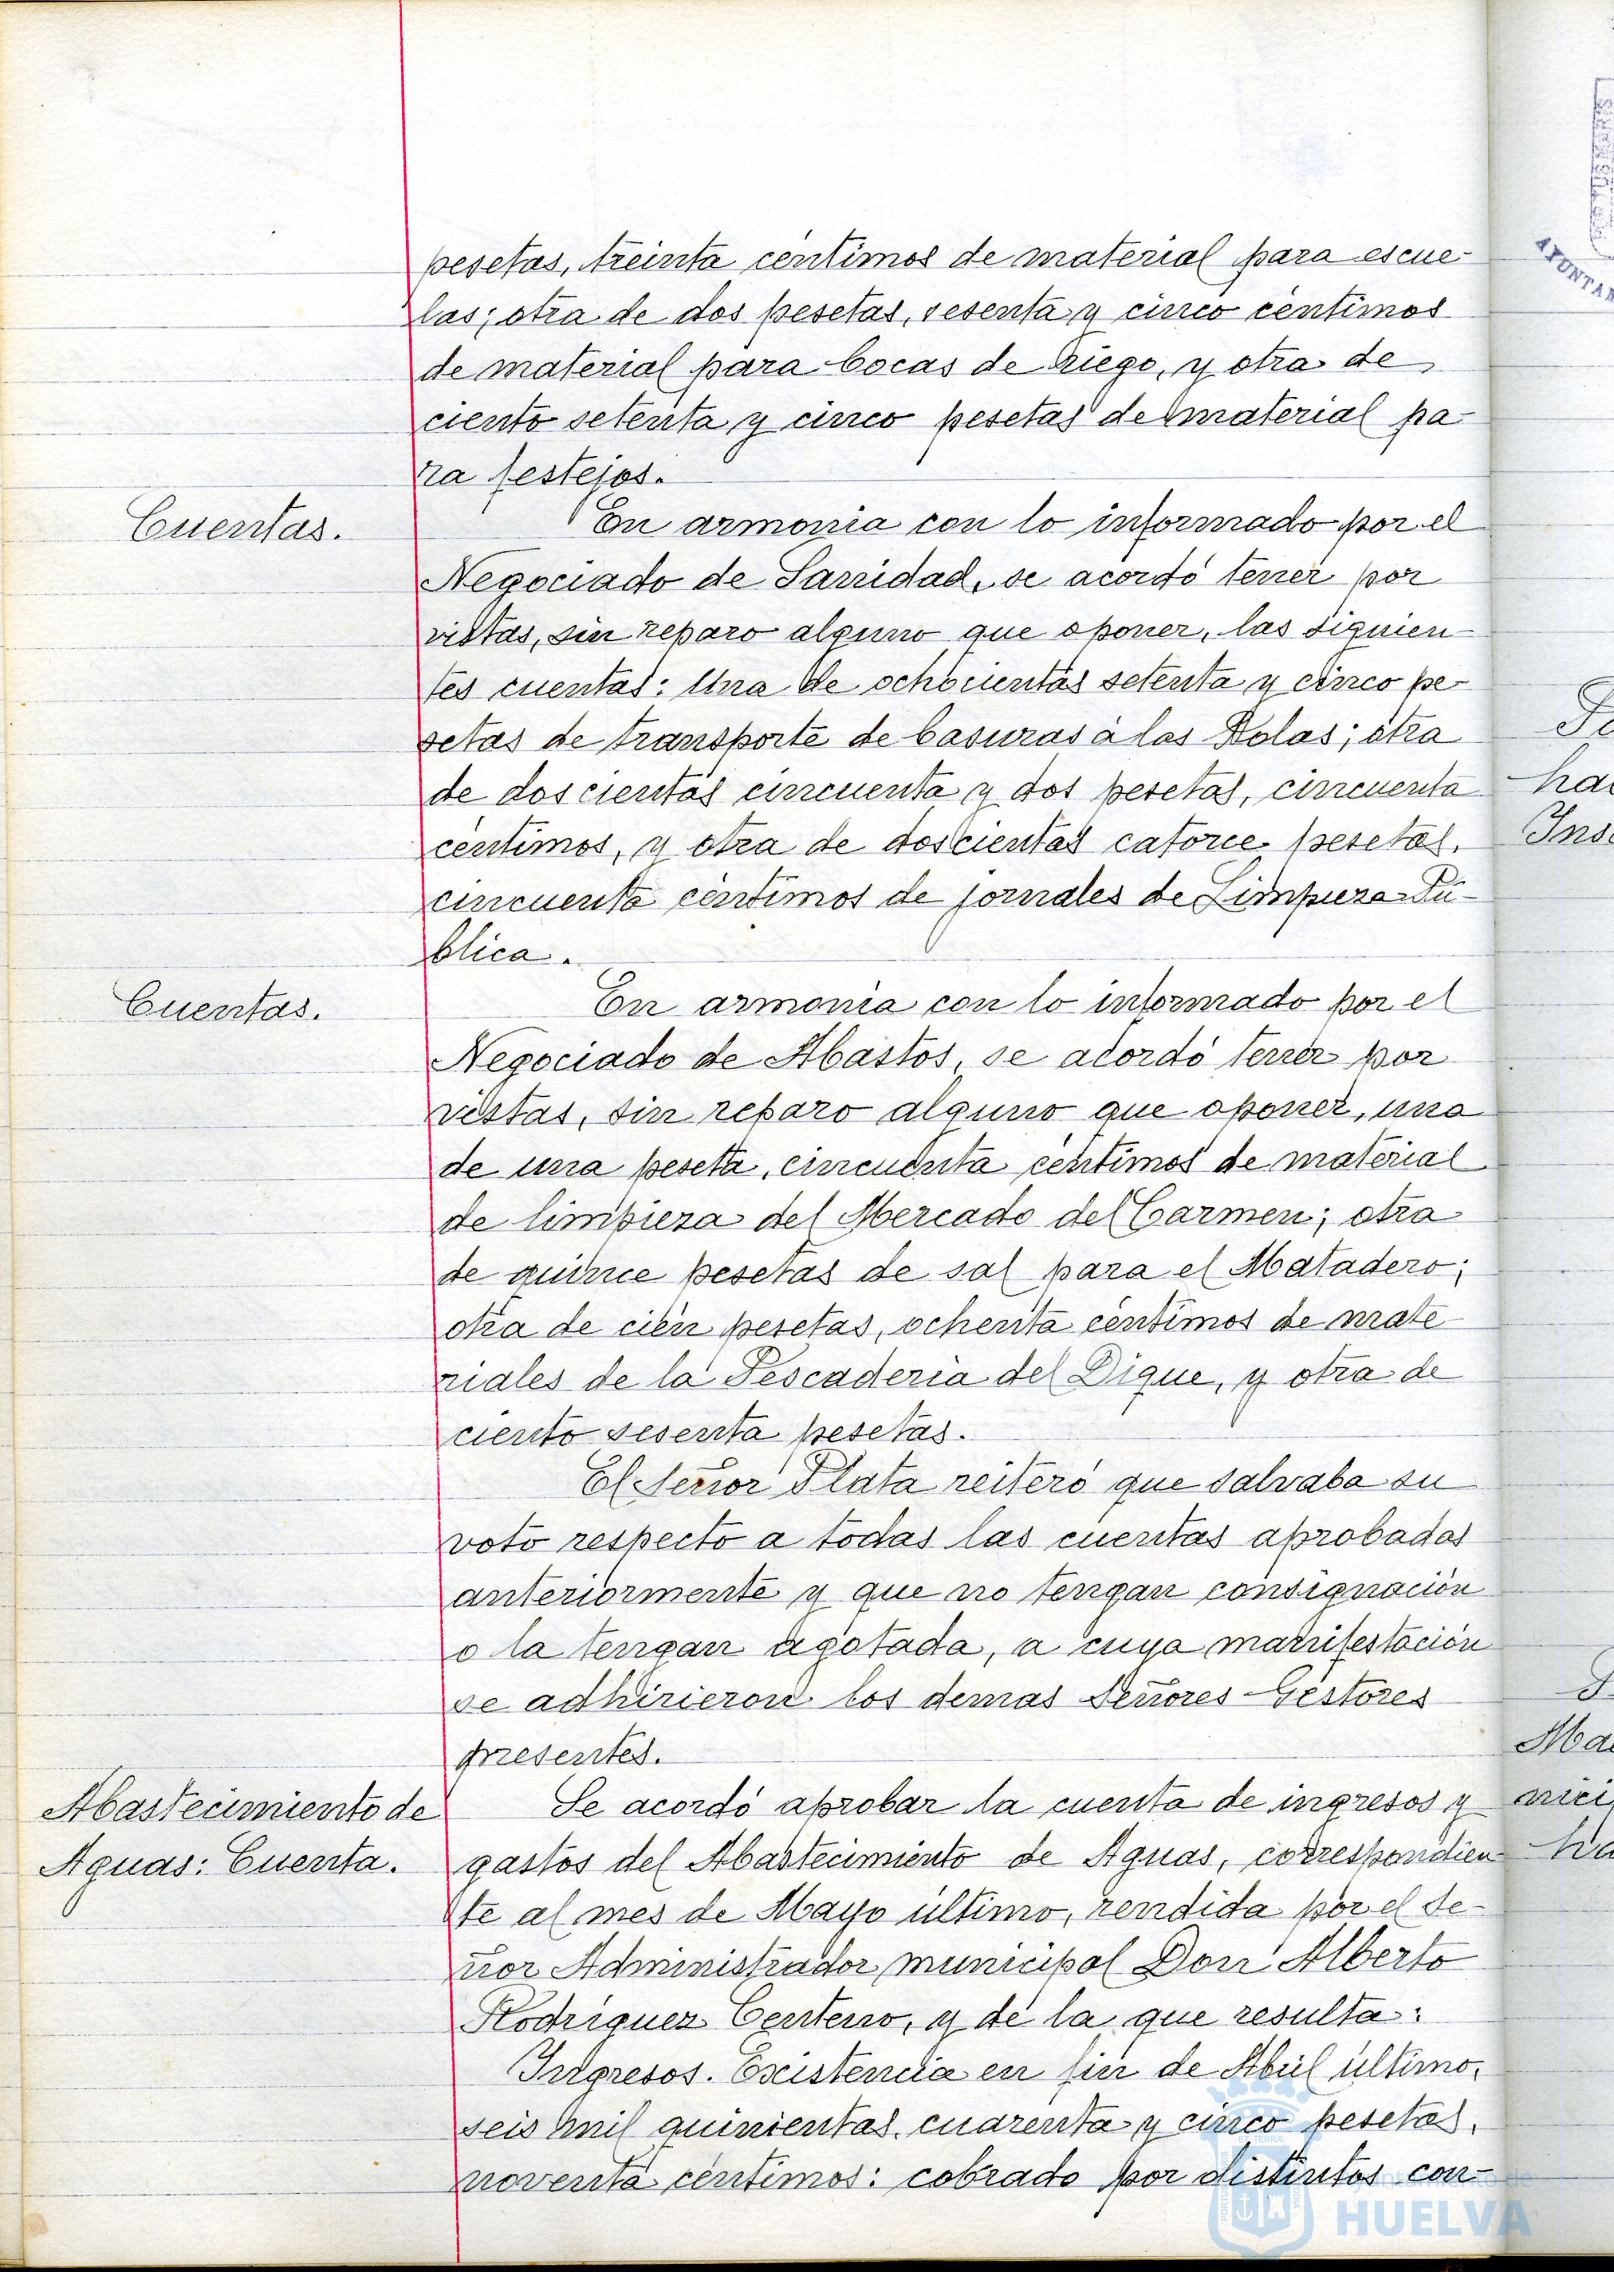 pesetas, treinta céntimos de material para escue-
las; otra de dos pesetas, sesenta y cinco céntimos
de material para bocas de riego, y otra de
ciento setenta y cinco pesetas de material pa-
ra festejos.
Cuentas.
En armonia con lo informado por el
Negociado de Sanidad, se acordó tener por
vistas, sin reparo alguno que oponer, las siguien-
tes cuentas: Una de ochocientas setenta y cinco pe-
setas de transporte de basuras a las Rolas; otra
de doscientas cincuenta y dos pesetas, cincuenta
céntimos, y otra de doscientas catorce pesetas,
cincuenta céntimos de jornales de Limpieza Pú-
blica.
Cuentas.
En armonia con lo informado por el
Negociado de Abastos, se acordó tener por
vistas, sin reparo alguno que oponer, una
de una peseta, cincuenta céntimos de material
de limpieza del Mercado del Carmen; otra
de quince pesetas de sal para el Matadero;
otra de cien pesetas, ochenta céntimos de mate-
riales de la Pescaderia del Dique, y otra de
ciento sesenta pesetas.
El Señor Plata reiteró que salvaba su
voto respecto a todas las cuentas aprobadas
anteriormente y que no tengan consignación
o la tengan agotada, a cuya manifestación
se adhirieron los demas Señores Gestores
presentes.
Abastecimiento de
Aguas: Cuenta.
Se acordó aprobar la cuenta de ingresos y
gastos del Abastecimiento de Aguas, correspondien-
te al mes de Mayo último, rendida por el Se-
ñor Administrador municipal Don Alberto
Rodriguez Centeno, y de la que resulta:
Ingresos. Existencia en fin de Abril último,
seis mil quinientas cuarenta y cinco pesetas,
noventa céntimos: cobrado por distintos con-
Ayuntamiento de
HUELVA
AYUNTAM
ha
Ins
Ma
nici
ha